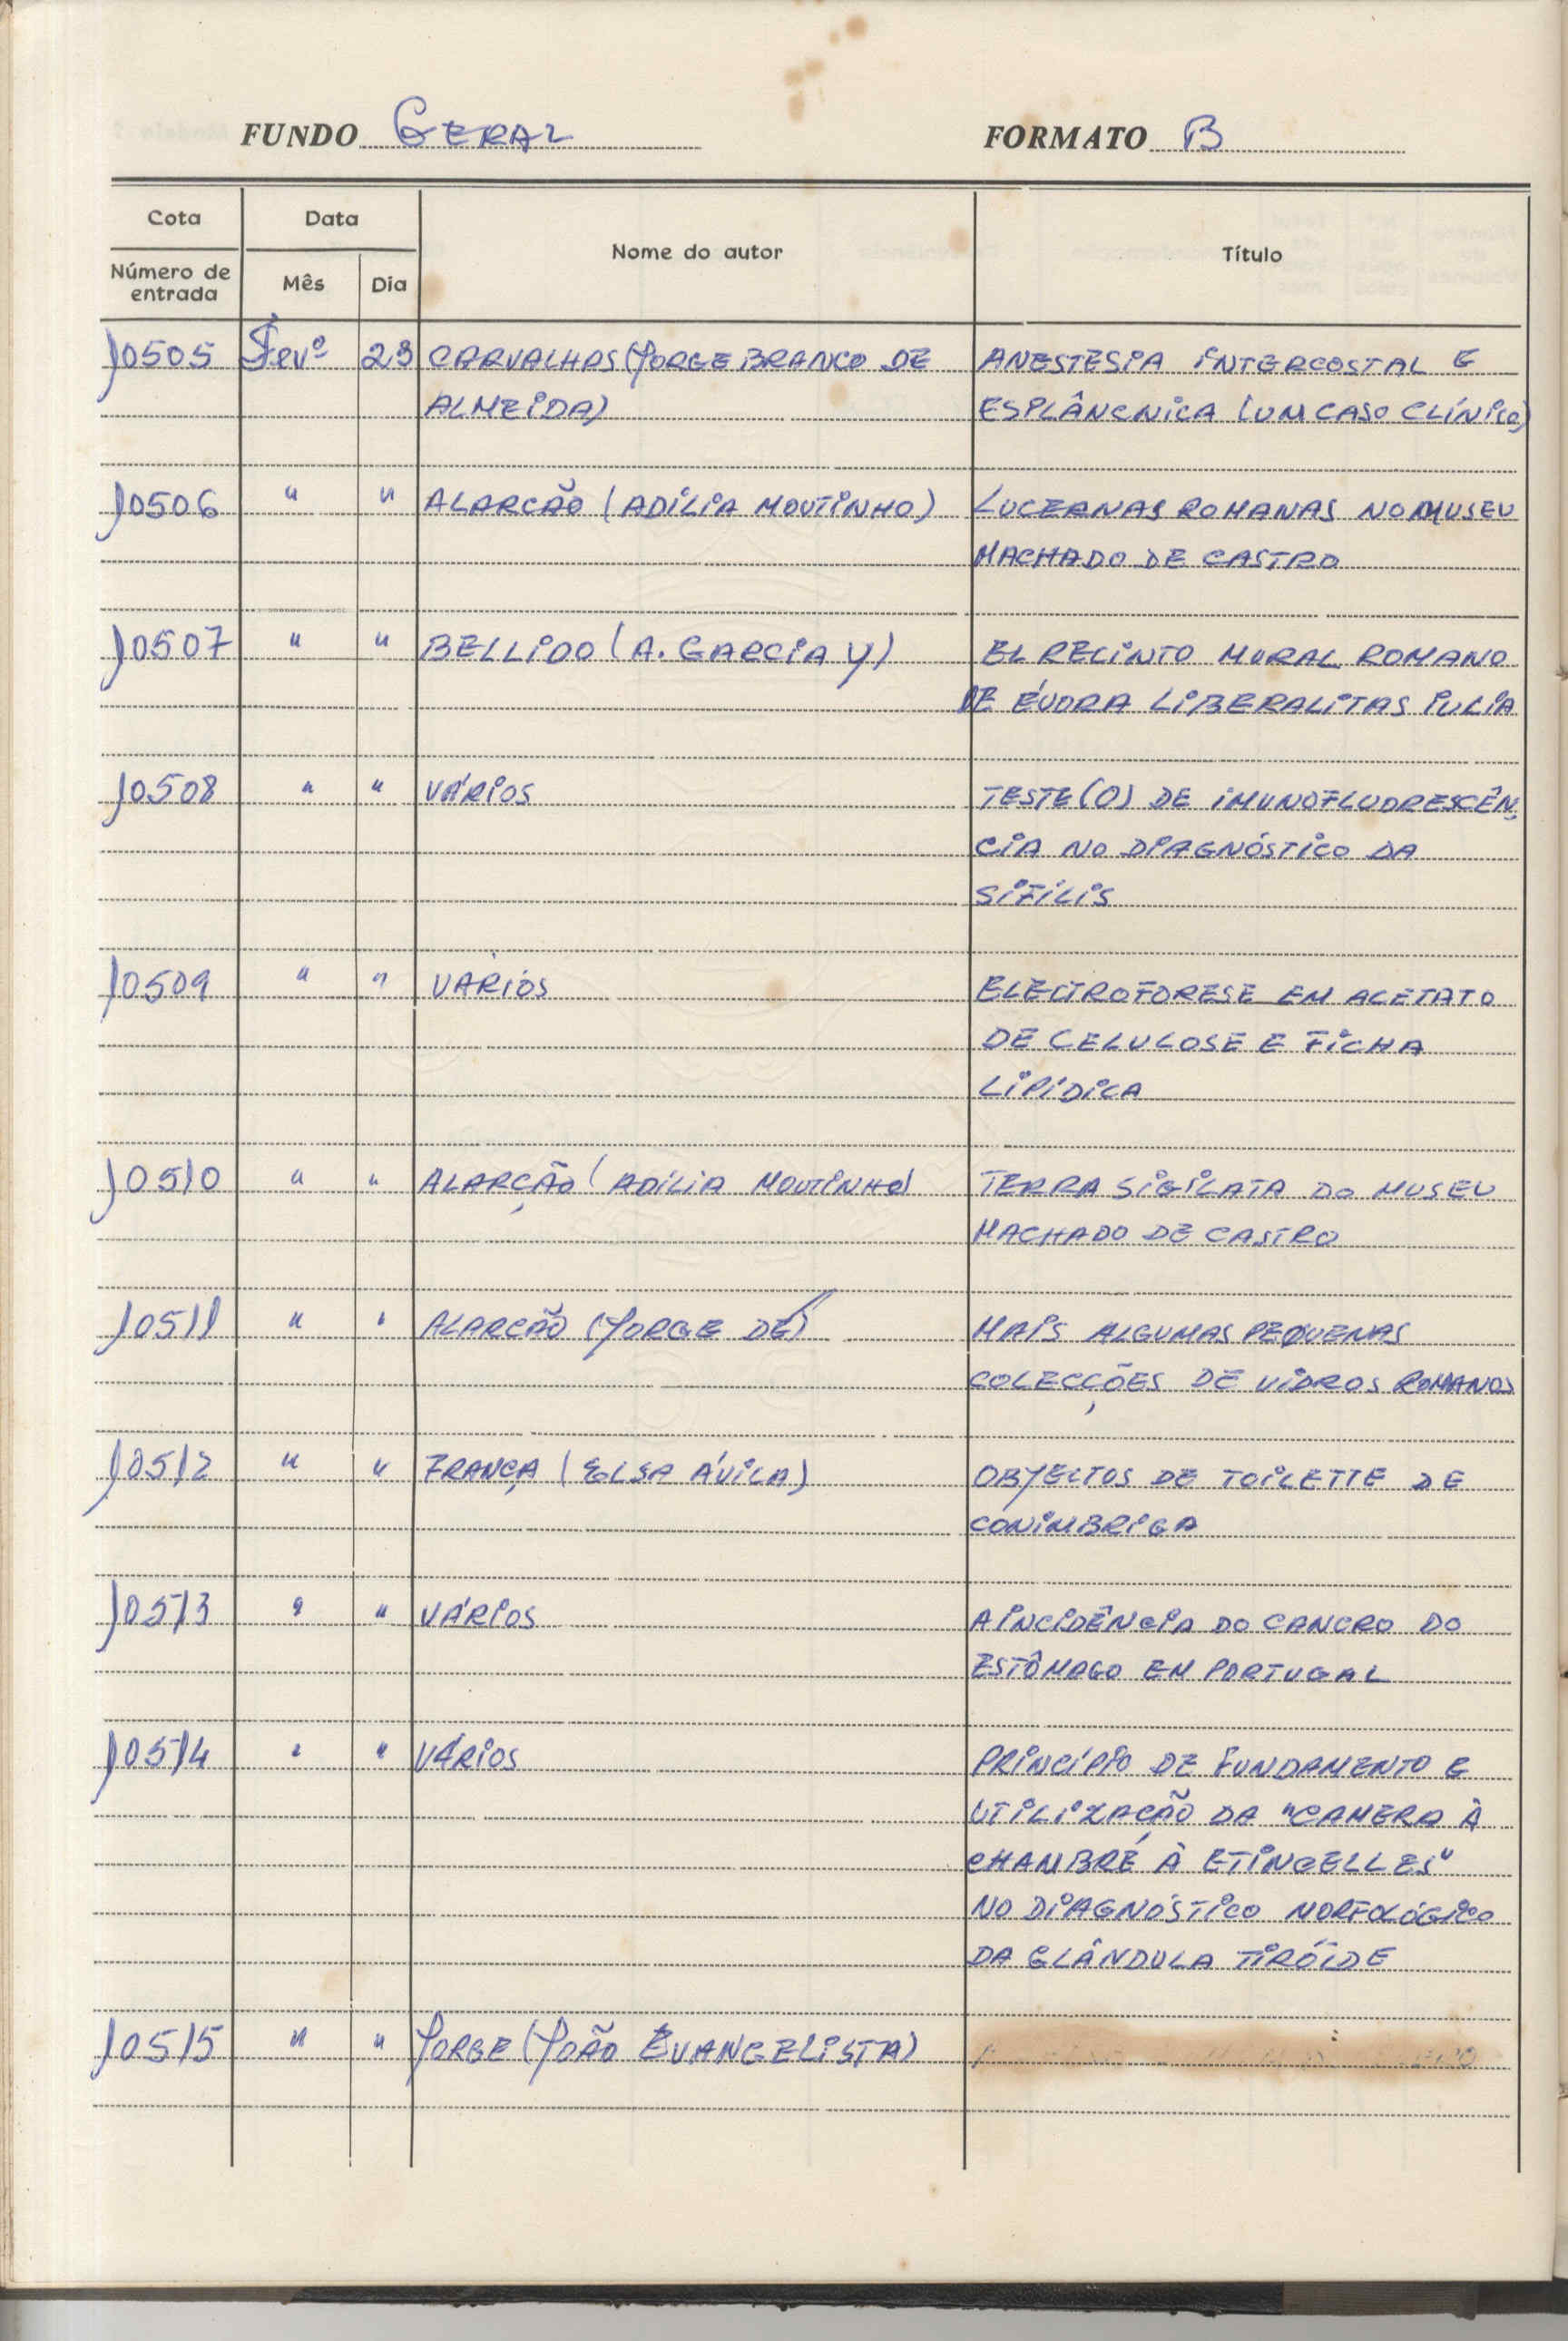 FUNDO GERAL FORMATO B
Cota Data Nome do autor Título
Número de entrada Mês Dia
10505 Fevº 23 CARVALHAS (JORGE BRANCO DE ANESTESIA INTERCOSTAL E
ALMEIDA) ESPLÂNCNICA (UM CASO CLÍNICO)
10506 " " ALARCÃO (ADÍLIA MOUTINHO) LUCERNAS ROMANAS NO MUSEU
MACHADO DE CASTRO
10507 " " BELLIDO (A. GARCIA Y) EL RECINTO MURAL ROMANO
DE ÉVORA LIBERALITAS IULIA
10508 " " VÁRIOS TESTE (O) DE IMUNOFLUORESCÊN
CIA NO DIAGNÓSTICO DA
SIFÍLIS
10509 " " VÁRIOS ELECTROFORESE EM ACETATO
DE CELULOSE E FICHA
LIPÍDICA
10510 " " ALARÇÃO (ADÍLIA MOUTINHO) TERRA SIGILATA DO MUSEU
MACHADO DE CASTRO
10511 " " ALARCÃO (JORGE DE) MAIS ALGUMAS PEQUENAS
COLECÇÕES DE VIDROS ROMANOS
10512 " " FRANÇA (ELSA ÁVILA) OBJECTOS DE TOILETTE DE
CONIMBRIGA
10513 " " VÁRIOS A INCIDÊNCIA DO CANCRO DO
ESTÔMAGO EM PORTUGAL
10514 " " VÁRIOS PRINCÍPIO DE FUNDAMENTO E
UTILIZAÇÃO DA "CAMERA À
CHAMBRÉ À ETINCELLES"
NO DIAGNÓSTICO MORFOLÓGICO
DA GLÂNDULA TIRÓIDE
10515 " " JORGE (JOÃO EVANGELISTA)